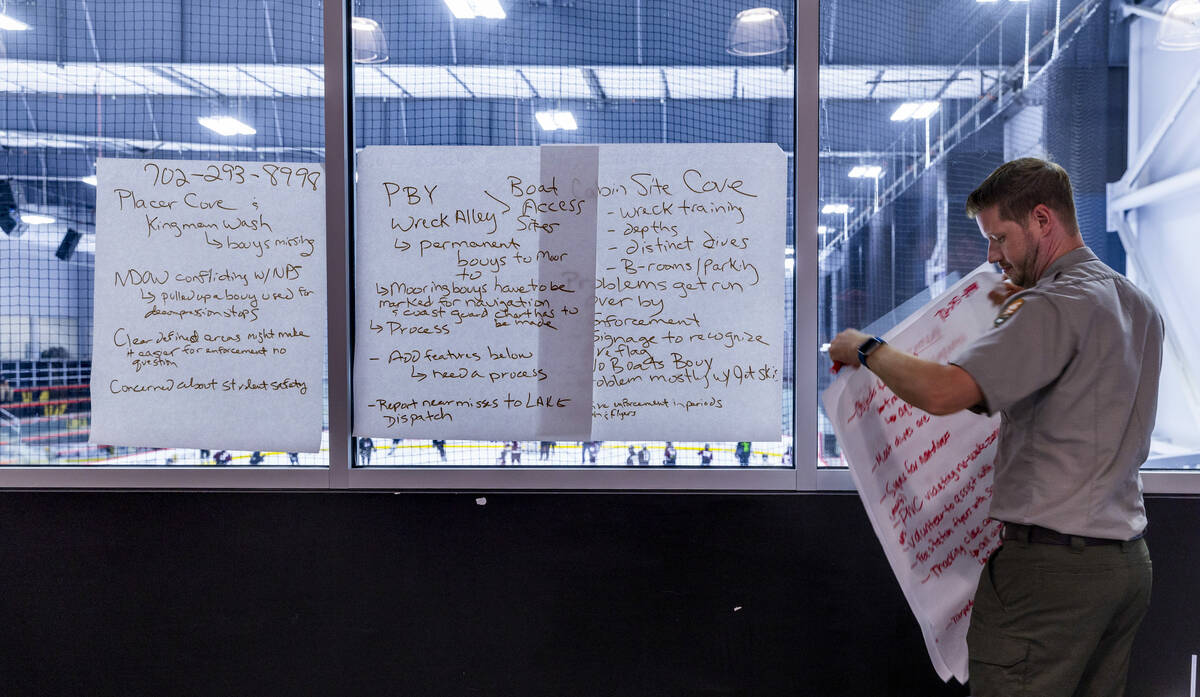 702-293-8998
Placer Cove &
Kingman Wash
↳ bouys missing
NDOW conflicting w/NPS
↳ pulled up a bouy used for
decompression stops
Clear defined areas might make
it easier for enforcement no
question
Concerned about student safety
PBY
Wreck Alley > Boat
Access
Sites
↳ permanent
bouys to Moor
to
↳ Mooring bouys have to be
marked for navigation
& coast guard chart has to
be made
↳ Process
- ADD features below
↳ need a process
- Report near misses to LAKE
Dispatch
Cabin Site Cove
- wreck training
- depths
- distinct dives
- B-rooms/Parking
Problems get run
over by
Enforcement
Signage to recognize
flag
No Boats Bouy
Problem mostly w/ Jet skis
enforcement in periods
& flyers
- Signs for
- PWC violating no-wake
- Volunteer to assist with
- Tracking